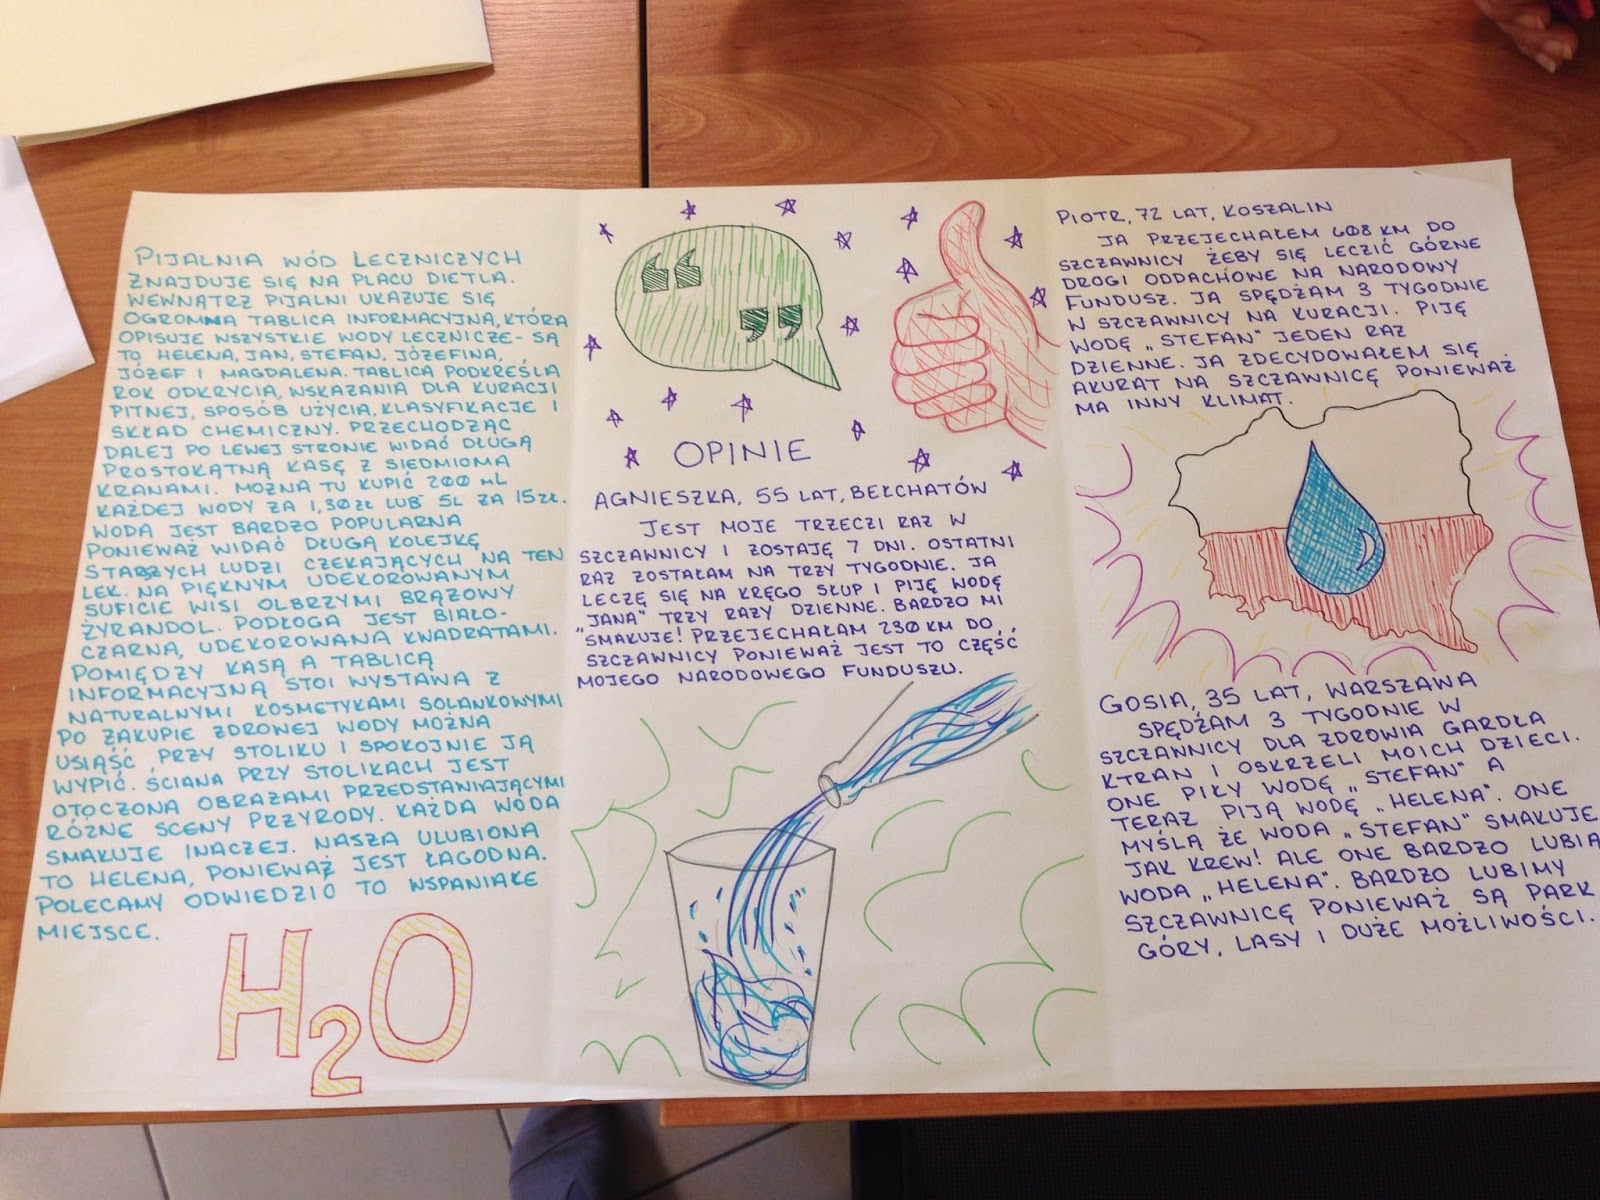 PIJALNIA WÓD LECZNICZYCH
ZNAJDUJE SIĘ NA PLACU DIETLA.
WEWNĄTRZ PIJALNI UKAZUJE SIĘ
OGROMNA TABLICA INFORMACYJNA, KTÓRA
OPISUJE WSZYSTKIE WODY LECZNICZE - SĄ
TO HELENA, JAN, STEFAN, JÓZEFINA,
JÓZEF I MAGDALENA. TABLICA PODKREŚLA
ROK ODKRYCIA, WSKAZANIA DLA KURACJI
PITNEJ, SPOSÓB UŻYCIA, KLASYFIKACJE I
SKŁAD CHEMICZNY. PRZECHODZĄC
DALEJ PO LEWEJ STRONIE WIDAĆ DŁUGĄ
PROSTOKĄTNĄ KASĘ Z SIEDMIOMA
KRANAMI. MOŻNA TU KUPIĆ 200 mL
KAŻDEJ WODY ZA 1,30 ZŁ LUB 5L ZA 15 ZŁ.
WODA JEST BARDZO POPULARNA
PONIEWAŻ WIDAĆ DŁUGĄ KOLEJKĘ
STARSZYCH LUDZI CZEKAJĄCYCH NA TEN
LEK. NA PIĘKNYM UDEKOROWANYM
SUFICIE WISI OLBRZYMI BRĄZOWY
ŻYRANDOL. PODŁOGA JEST BIAŁO-
CZARNA, UDEKOROWANA KWADRATAMI.
POMIĘDZY KASĄ A TABLICĄ
INFORMACYJNĄ STOI WYSTAWA Z
NATURALNYMI KOSMETYKAMI SOLANKOWYMI
PO ZAKUPIE ZDROWEJ WODY MOŻNA
USIĄŚĆ PRZY STOLIKU I SPOKOJNIE JĄ
WYPIĆ. ŚCIANA PRZY STOLIKACH JEST
OTOCZONA OBRAZAMI PRZEDSTAWIAJĄCYMI
RÓŻNE SCENY PRZYRODY. KAŻDA WODA
SMAKUJE INACZEJ. NASZA ULUBIONA
TO HELENA, PONIEWAŻ JEST ŁAGODNA.
POLECAMY ODWIEDZIĆ TO WSPANIAŁE
MIEJSCE.
H2O
OPINIE
AGNIESZKA, 55 LAT, BEŁCHATÓW
JEST MOJE TRZECZI RAZ W
SZCZAWNICY I ZOSTAJĘ 7 DNI. OSTATNI
RAZ ZOSTAŁAM NA TRZY TYGODNIE. JA
LECZĘ SIĘ NA KRĘGO SŁUP I PIJĘ WODĘ
"JANA" TRZY RAZY DZIENNE. BARDZO MI
SMAKUJE! PRZEJECHAŁAM 230 KM DO
SZCZAWNICY PONIEWAŻ JEST TO CZĘŚĆ
MOJEGO NARODOWEGO FUNDUSZU.
PIOTR, 72 LAT, KOSZALIN
JA PRZEJECHAŁEM 608 KM DO
SZCZAWNICY ŻEBY SIĘ LECZIĆ GÓRNE
DROGI ODDACHOWE NA NARODOWY
FUNDUSZ. JA SPĘDŻAM 3 TYGODNIE
W SZCZAWNICY NA KURACJI. PIJĘ
WODĘ „STEFAN" JEDEN RAZ
DZIENNE. JA ZDECYDOWAŁEM SIĘ
AKURAT NA SZCZAWNICĘ PONIEWAŻ
MA INNY KLIMAT.
GOSIA, 35 LAT, WARSZAWA
SPĘDŻAM 3 TYGODNIE W
SZCZAWNICY DLA ZDROWIA GARDŁA
KTRAN I OSKRZELI MOICH DZIECI.
ONE PIŁY WODĘ „STEFAN" A
TERAZ PIJĄ WODĘ „HELENA". ONE
MYŚLĄ ŻE WODA „STEFAN" SMAKUJE
JAK KREW! ALE ONE BARDZO LUBIĄ
WODA „HELENA". BARDZO LUBIMY
SZCZAWNICĘ PONIEWAŻ SĄ PARK
GÓRY, LASY I DUŻE MOŻLIWOŚCI.